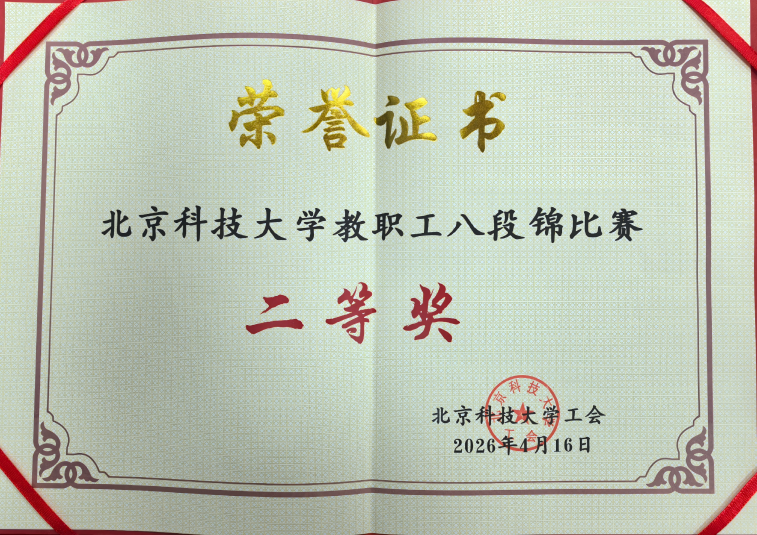 荣誉证书
北京科技大学教职工八段锦比赛
二等奖
北京科技大学工会
2026年4月16日
北京科技大学
工会